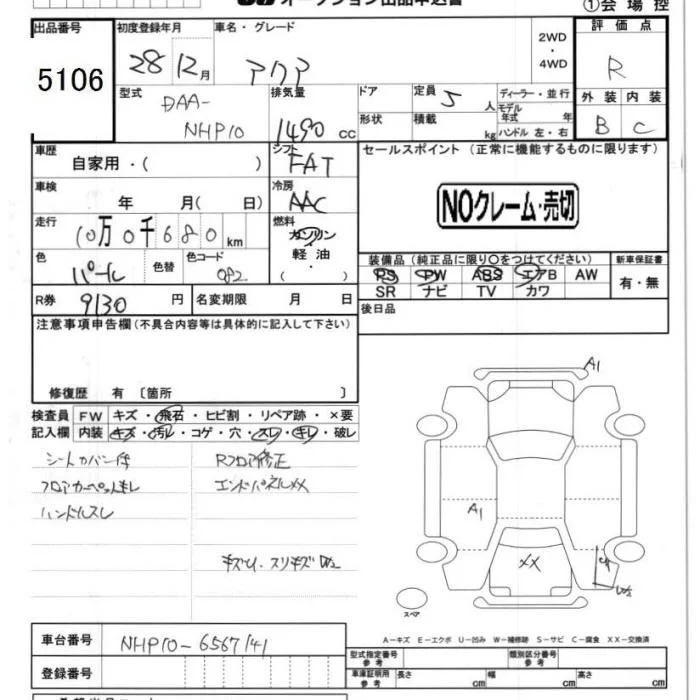 オークション出品申込書
①会場控
出品番号
5106
初度登録年月
28 12月
車名・グレード
アクア
2WD
・
4WD
評価点
R
型式
DAA-
NHP10
排気量
1490 cc
ドア
形状
定員 5 人
積載 kg
ディーラー・並行
モデル
年式 年
ハンドル 左・右
外装 内装
B C
車歴
自家用・( )
シフト
FAT
セールスポイント(正常に機能するものに限ります)
NOクレーム・売切
車検
年 月( 日)
冷房
AAC
走行
10万0千680km
燃料
ガソリン
・
軽油
・
( )
色
パール
色替
色コード
082
装備品(純正品に限り○をつけてください)
PS PW ABS エアB AW
SR ナビ TV カワ
新車保証書
有・無
R券 9130 円
名変期限 月 日
後日品
注意事項申告欄(不具合内容等は具体的に記入して下さい)
修復歴 有〔箇所 〕
検査員
記入欄
FW キズ・飛石・ヒビ割・リペア跡・×要
内装 キズ・汚レ・コゲ・穴・スレ・キレ・破レ
シートカバー付
フロアカーペットキレ
ハンドルスレ
Rフロア修正
エンドパネルXX
キズU・スリキズ W2
A1
A1
XX
W2
スペア
A-キズ E-エクボ U-凹み W-補修跡 S-サビ C-腐食 XX-交換済
車台番号
NHP10-6567141
登録番号
型式指定番号
参考
類別区分番号
参考
車庫証明用
参考
長さ cm
幅 cm
高さ cm